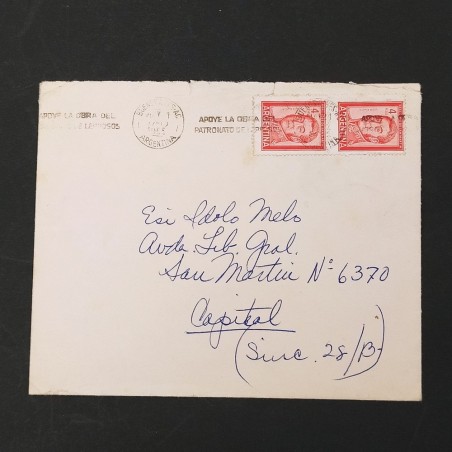 APOYE LA OBRA DEL
APOYE LA OBRA
PATRONATO DE
ARGENTINA
4
ARGENTINA
4
ARGENTINA
Esi Idolo Melo
Avda. Lib. Gral.
San Martin Nº 6370
Capital
(Suc. 28/B)